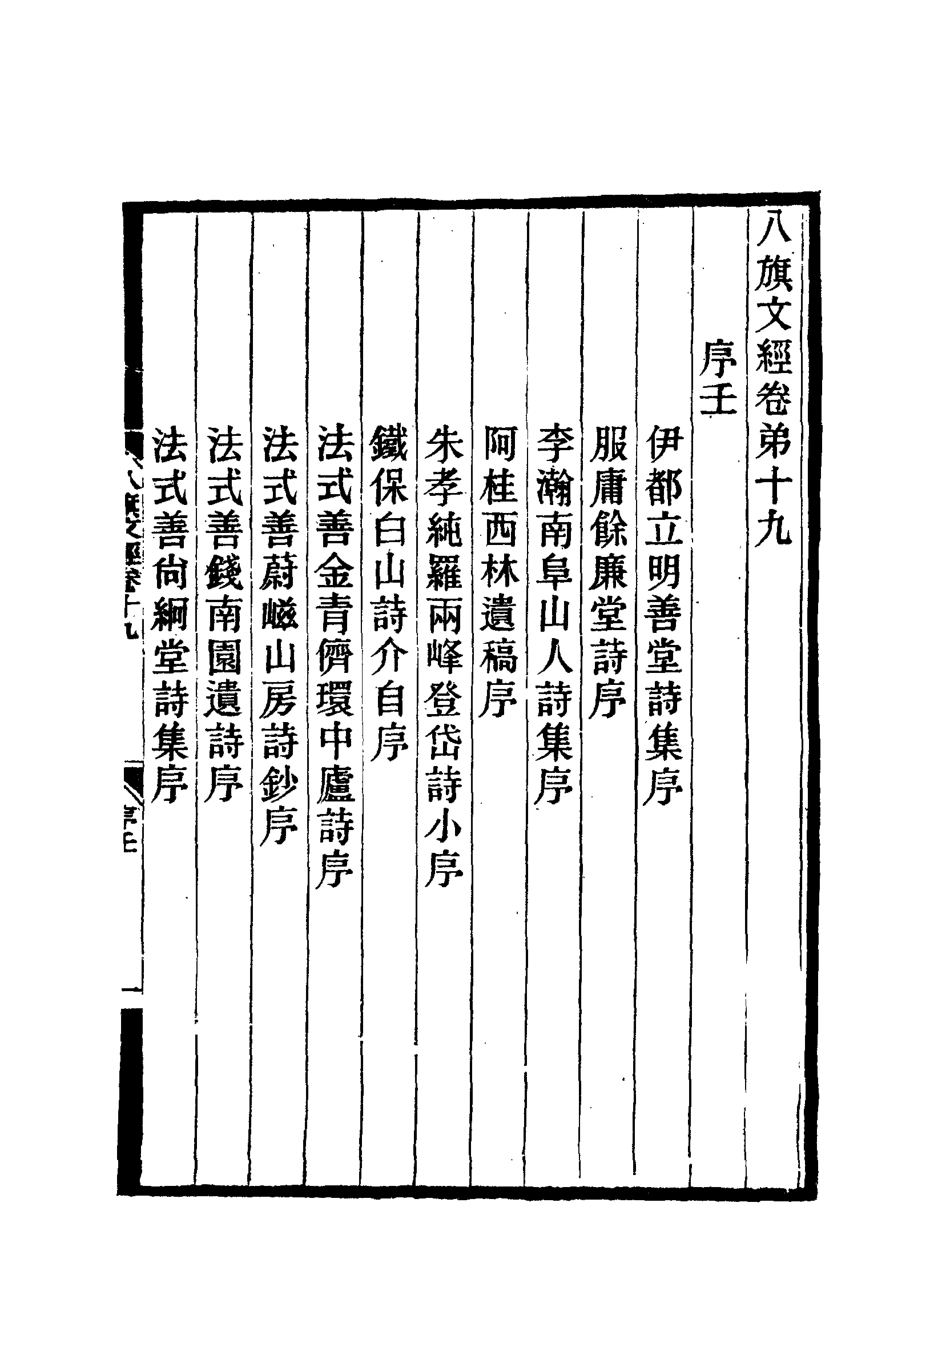 八旗文經卷弟十九
序壬
伊都立明善堂詩集序
服庸餘廉堂詩序
李瀚南阜山人詩集序
阿桂西林遺稿序
朱孝純羅兩峰登岱詩小序
鐵保白山詩介自序
法式善金青儕環中廬詩序
法式善蔚嵫山房詩鈔序
法式善錢南園遺詩序
法式善尙絅堂詩集序
八旗文經卷十九
序壬
一